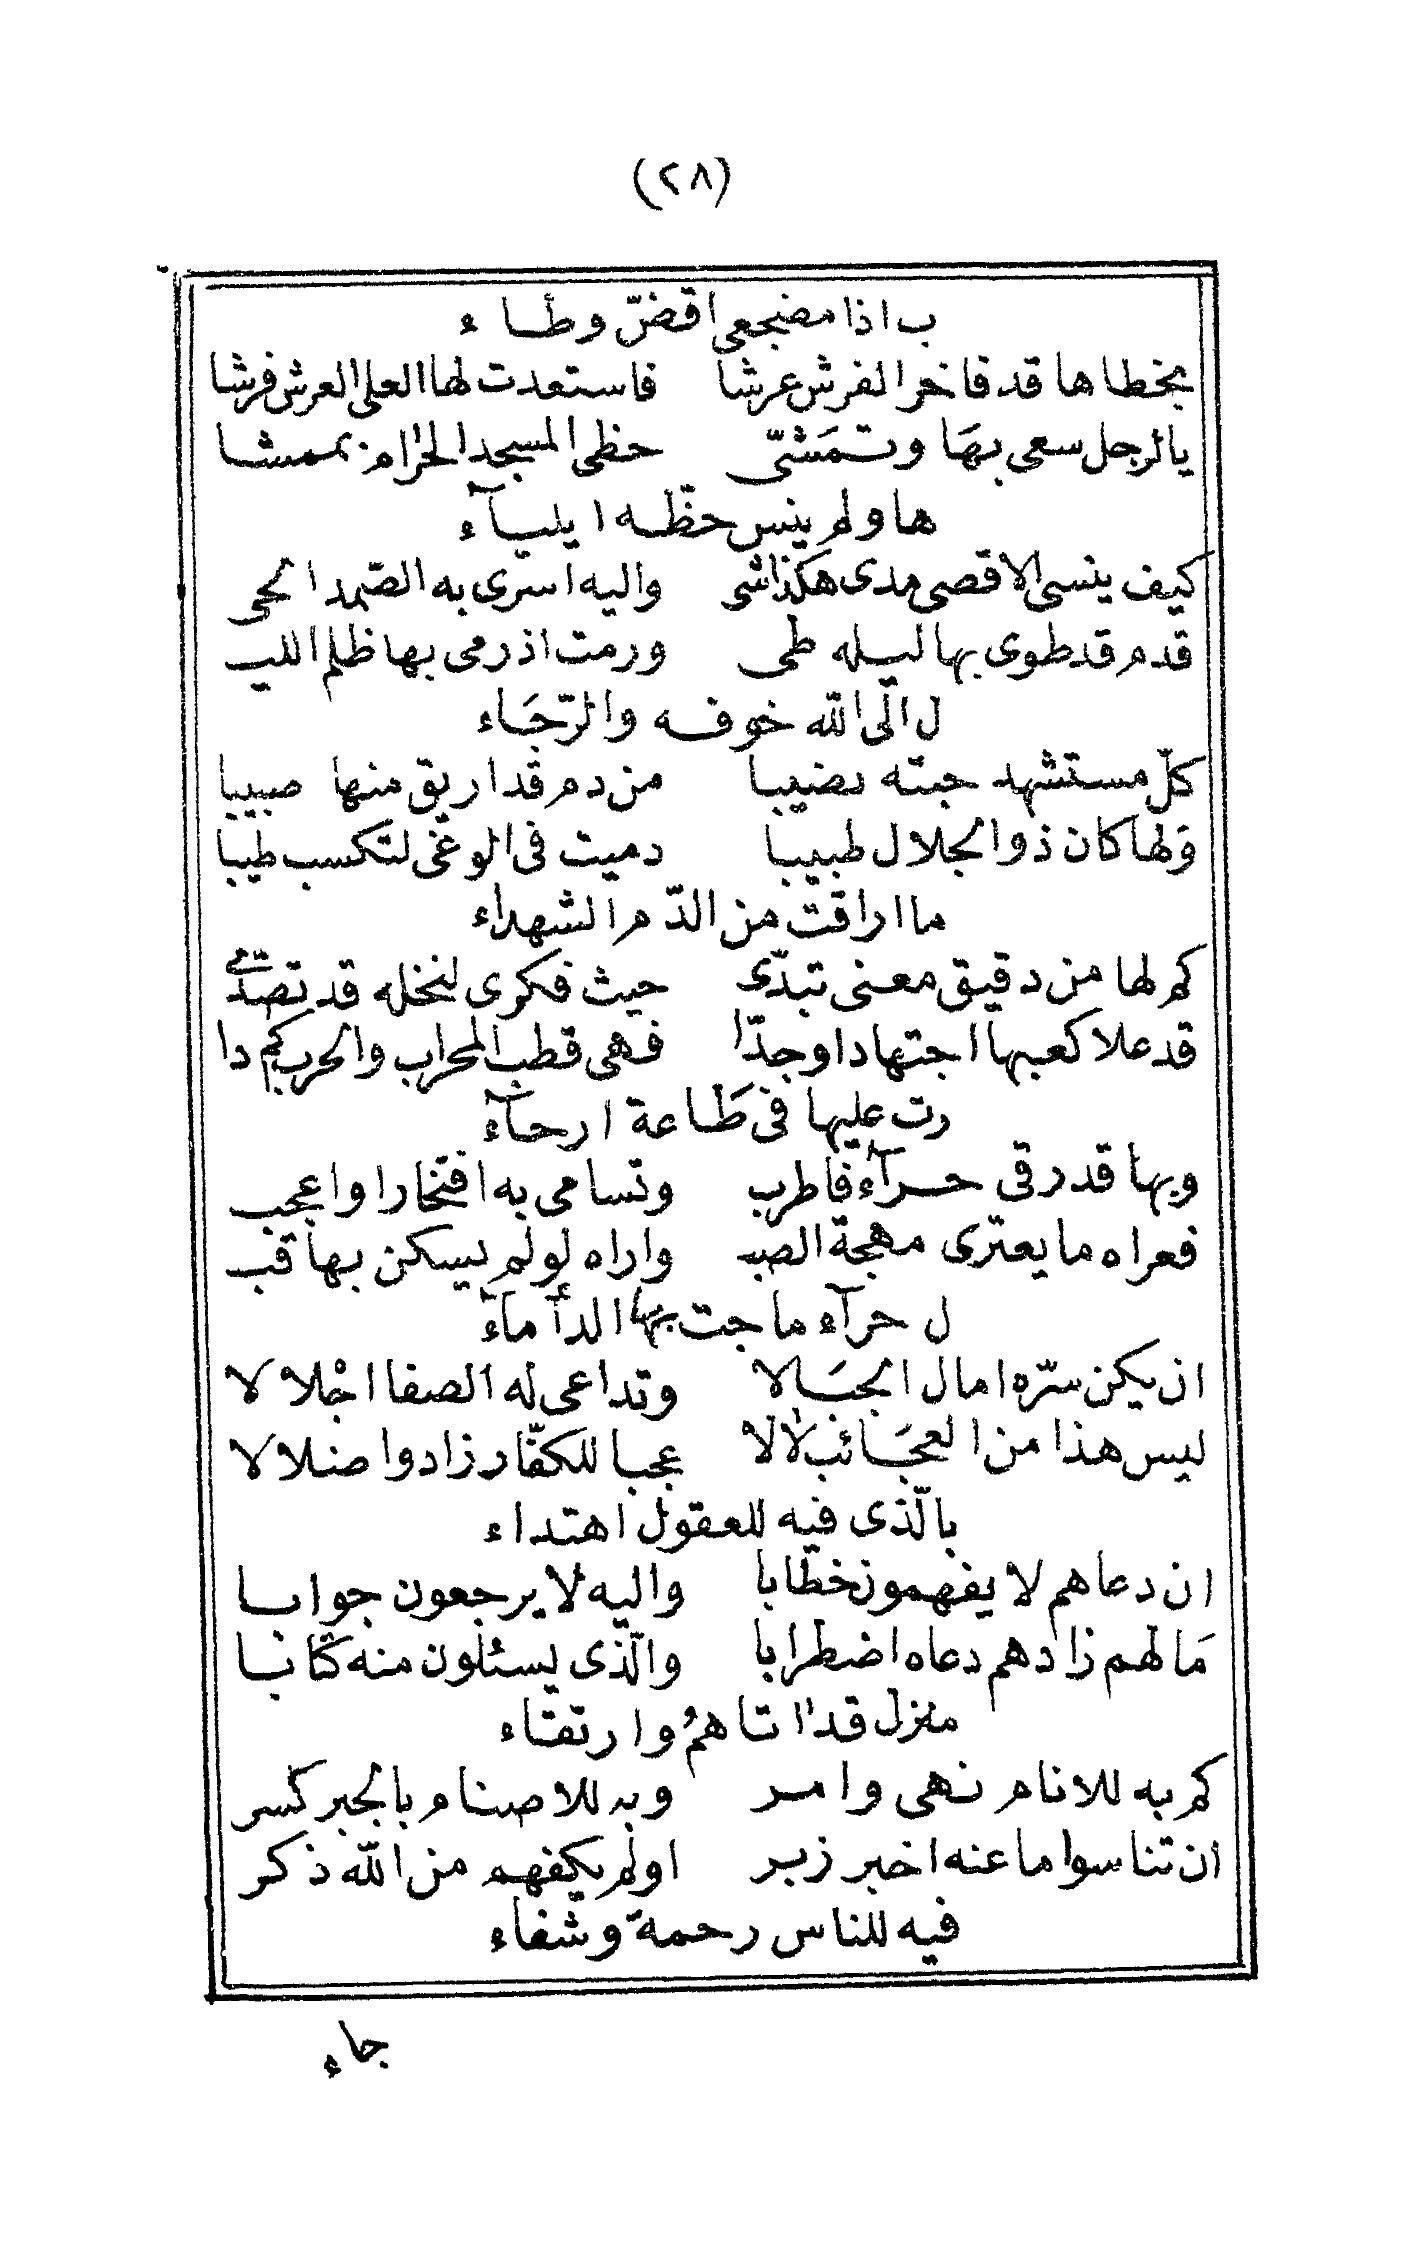 (٢٨)
ب اذا مضجعى اقضّ وطاء
بخطاها قد فاخر الفرش عرشا فاستعدت لها العلى العرش فرشا
يالرجل سعى بهَا وتمَشّى حظى المسجد الحرام بممشا
ها ولم ينس حظّه ايليآء
كيف ينسى الاقصى مدى هكذاشى واليه اسرى به الصّمد الحى
قدم قد طوى بها ليله طى ورمت اذ رمى بها ظلم الليـ
ل الى الله خوفه والرّجَاء
كلّ مستشهد جبته نصيبا من دم قد اريق منها صبيبا
ولها كان ذو الجلال طبيبا دميت فى الوغى لتكسب طيبا
ما اراقت من الدّم الشهداء
كم لها من دقيق معنى تبدّى حيث فكرى لنخله قد تصدّى
قد علا كعبها اجتهادا وجدّا فهى قطب المحراب والحرب كم دا
رت عليها فى طَاعة ارحآء
وبها قد رقى حرآء فاطرب وتسامى به افتخارا واعجب
فعراه ما يعترى مهجة الصب واراه لو لم يسكن بها قبـ
ل حرآء ماجت بهَا الدأمآء
ان يكن سرّه امال الجبَالا وتداعى له الصفا اجْلالا
ليس هذا من العجَائب لالا عجبا للكفّار زادوا ضلالا
بالّذى فيه للعقول اهتداء
ان دعاهم لا يفهمون خطابا واليه لا يرجعون جوابا
مَا لهم زادهم دعاه اضطرابا والّذى يسئلون منه كتابا
منزل قد اتاهمُ وارتقاء
كم به للانام نهى وامر وبه للاصنام بالجبر كسر
ان تناسوا ما عنه اخبر زبر اولم يكفهم من الله ذكر
فيه للناس رحمة وشفاء
جاء